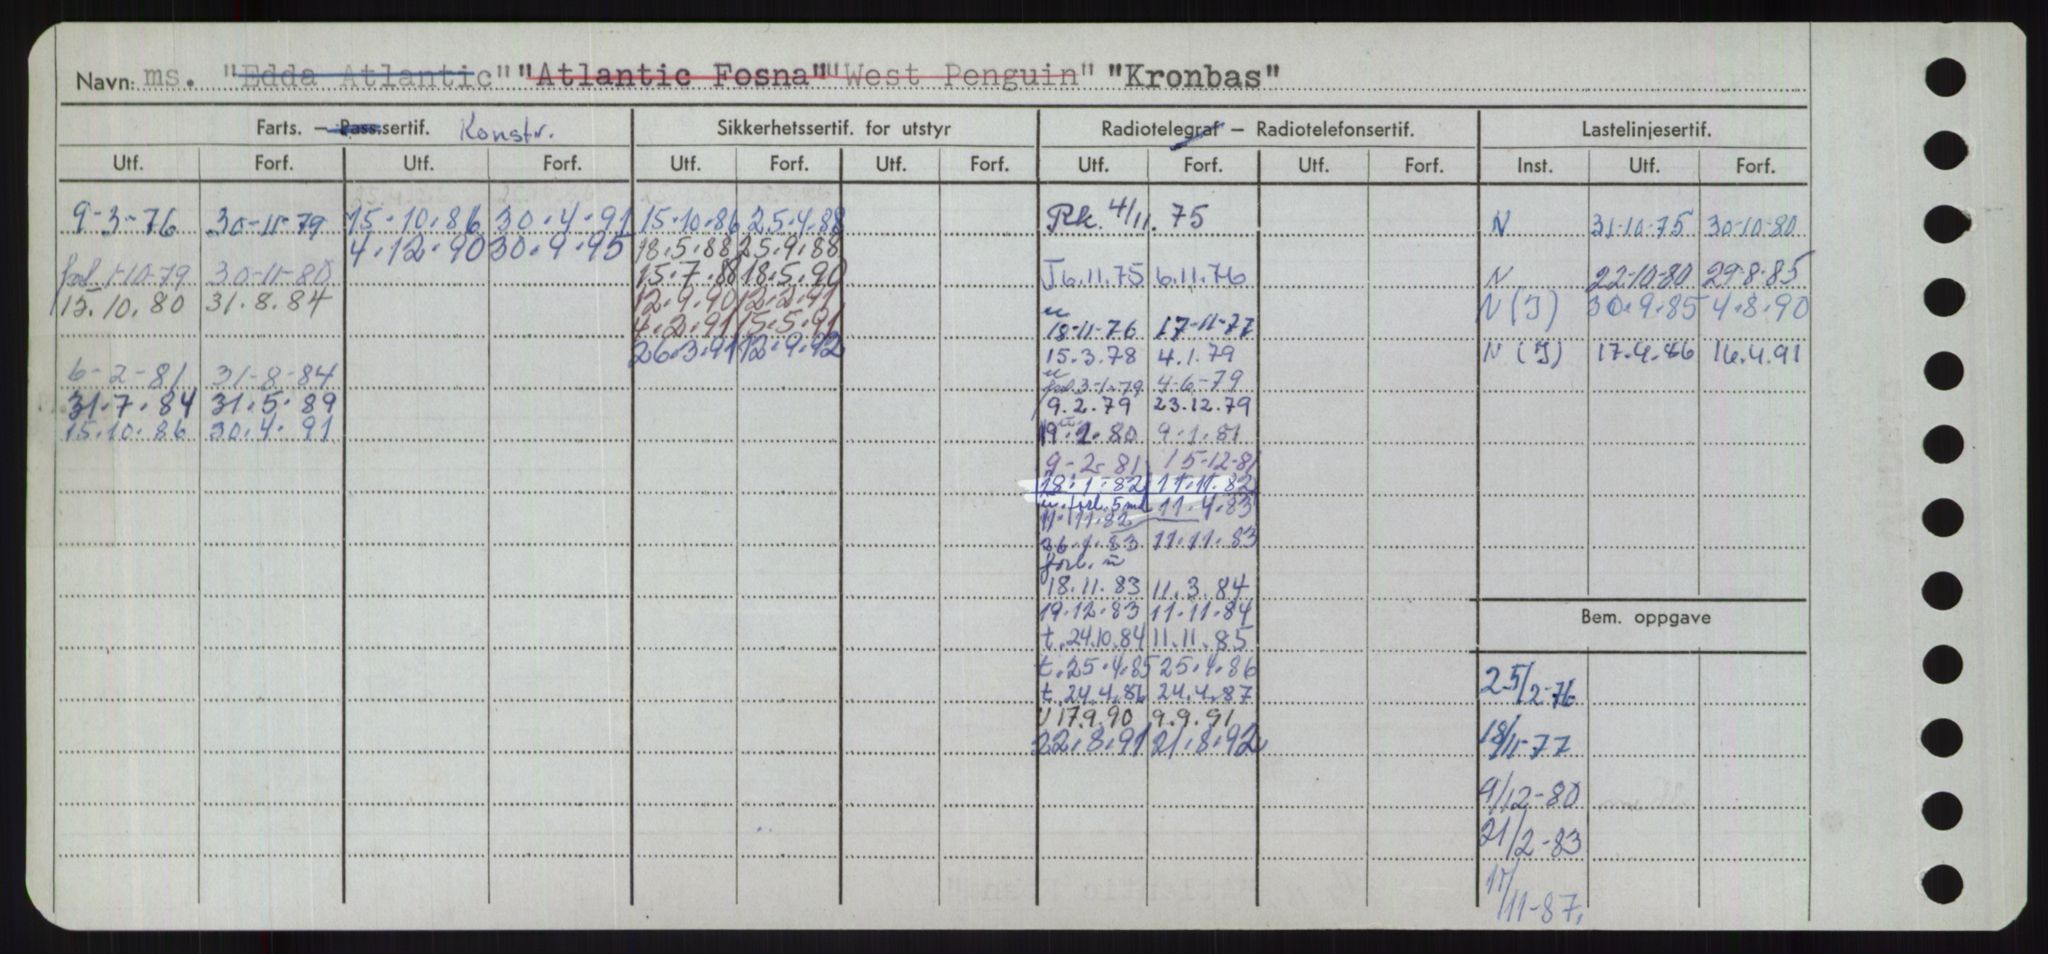 Navn: ms. "Edda Atlantic" "Atlantic Fosna" "West Penguin" "Kronbas"
Farts. — Pass.sertif. Konstr. Sikkerhetssertif. for utstyr Radiotelegraf — Radiotelefonsertif. Lastelinjesertif.
Utf. Forf. Utf. Forf. Utf. Forf. Utf. Forf. Utf. Forf. Utf. Forf. Inst. Utf. Forf.
9-3-76 30-11-79 15.10.86 30.4.91 15.10.86 25.4.88 Rk. 4/11. 75 N 31-10-75 30-10-80
4.12.90 30.9.95 18.5.88 25.9.88
1-10-79 30-11-80 15.7.88 18.5.90 J 6.11.75 6.11.76 N 22-10-80 29-8-85
15.10.80 31.8.84 12.9.90 12.2.91 N (J) 30.9.85 4.8.90
4.2.91 15.5.91 18-11-76 17-11-77
26.3.91 12.9.92 15.3.78 4.1.79 N (J) 17.4.86 16.4.91
6-2-81 31-8-84 3-1-79 4-6-79
31.7.84 31.5.89 9.2.79 23.12.79
15.10.86 30.4.91 9.1.81
9-2-81 15-12-81
18.1.82 11.11.82
u. forl. 5 md 11.4.83
11.11.82
11.11.83
forl. u
18.11.83 11.3.84
19.12.83 11.11.84
Bem. oppgave
t. 24.10.84 11.11.85
t. 25.4.85 25.4.86
25/2-76
t. 24.4.86 24.4.87
17.9.90 9.9.91
22.8.91 21.8.92
18/11-77
9/12-80
21/2-83
17/11-87.